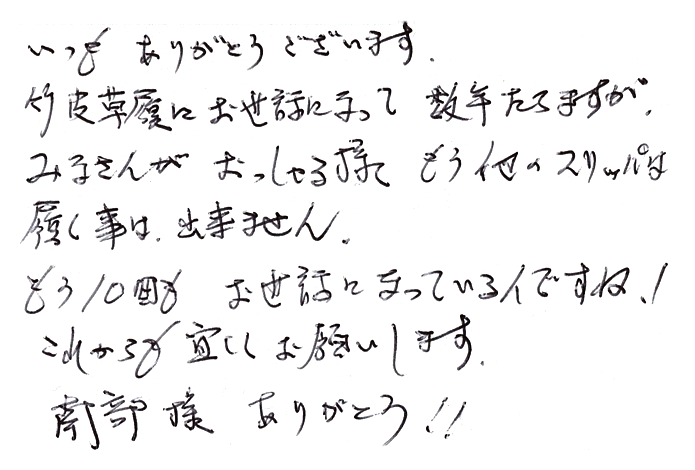 いつも ありがとうございます.
竹皮草履にお世話になって 数年たちますが、
みなさんが おっしゃる様に もう他のスリッパは
履く事は、出来ません.
もう10回も お世話になっている人ですね!
これからも 宜しくお願いします.
南部様 ありがとう!!